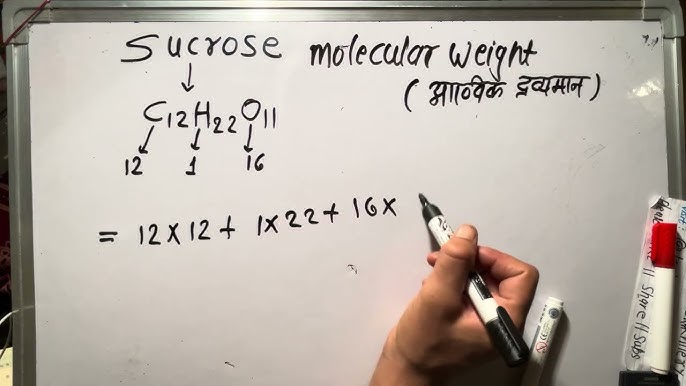 Sucrose molecular weight
(आण्विक द्रव्यमान)
C₁₂H₂₂O₁₁
12 1 16
= 12×12 + 1×22 + 16×
Share || Subs